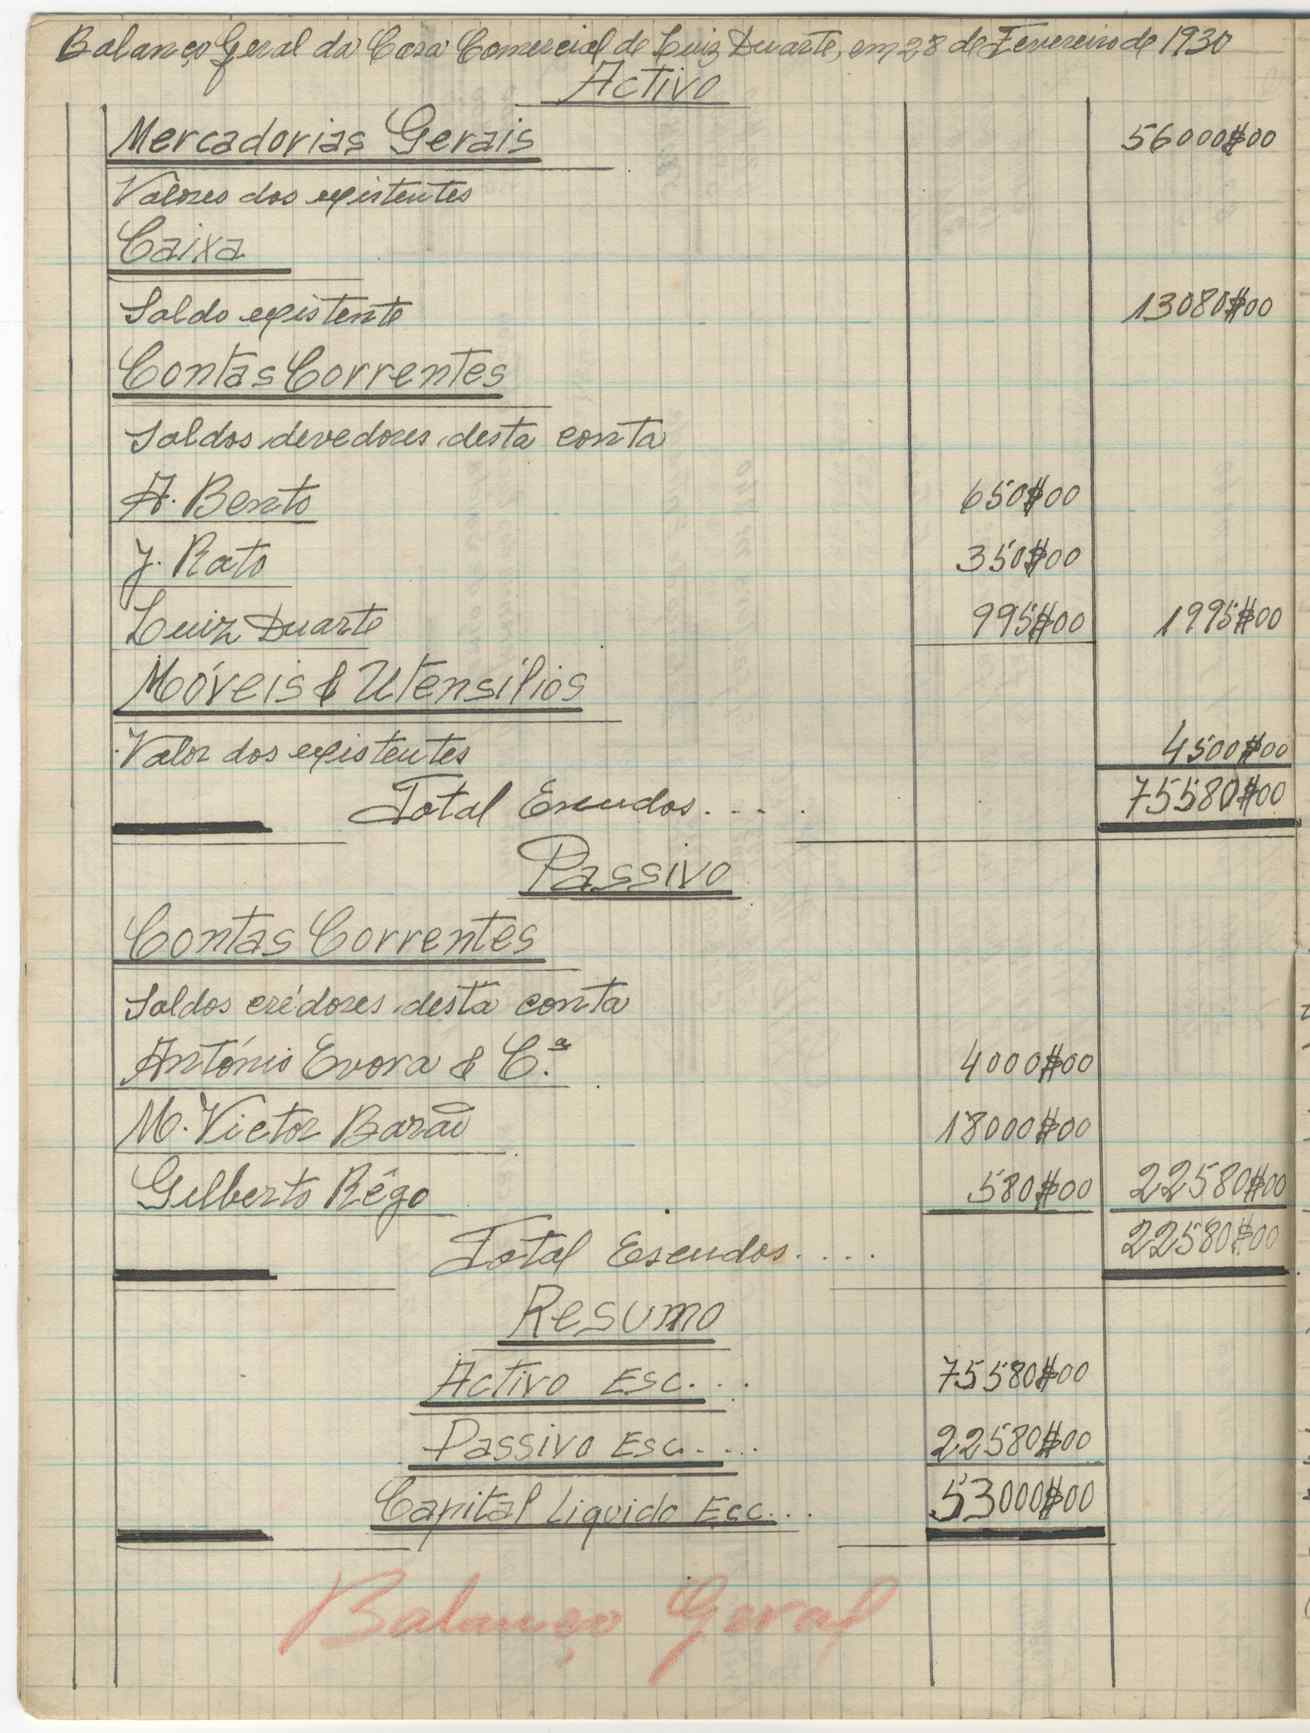 Balanço Geral da Casa Comercial de Luiz Duarte, em 28 de Fevereiro de 1930
Activo
Mercadorias Gerais 56000$00
Valores dos existentes
Caixa
Saldo existente 13080$00
Contas Correntes
Saldos devedores desta conta
A. Bento 650$00
J. Rato 350$00
Luiz Duarte 995$00 1995$00
Móveis & Utensílios
Valor dos existentes 4500$00
Total Escudos.... 75580$00
Passivo
Contas Correntes
Saldos crédores desta conta
António Evora & C.ª 4000$00
M. Victor Barão 18000$00
Gilberto Rêgo 580$00 22580$00
Total Escudos.... 22580$00
Resumo
Activo Esc... 75580$00
Passivo Esc.... 22580$00
Capital Liquido Esc... 53000$00
Balanço Geral